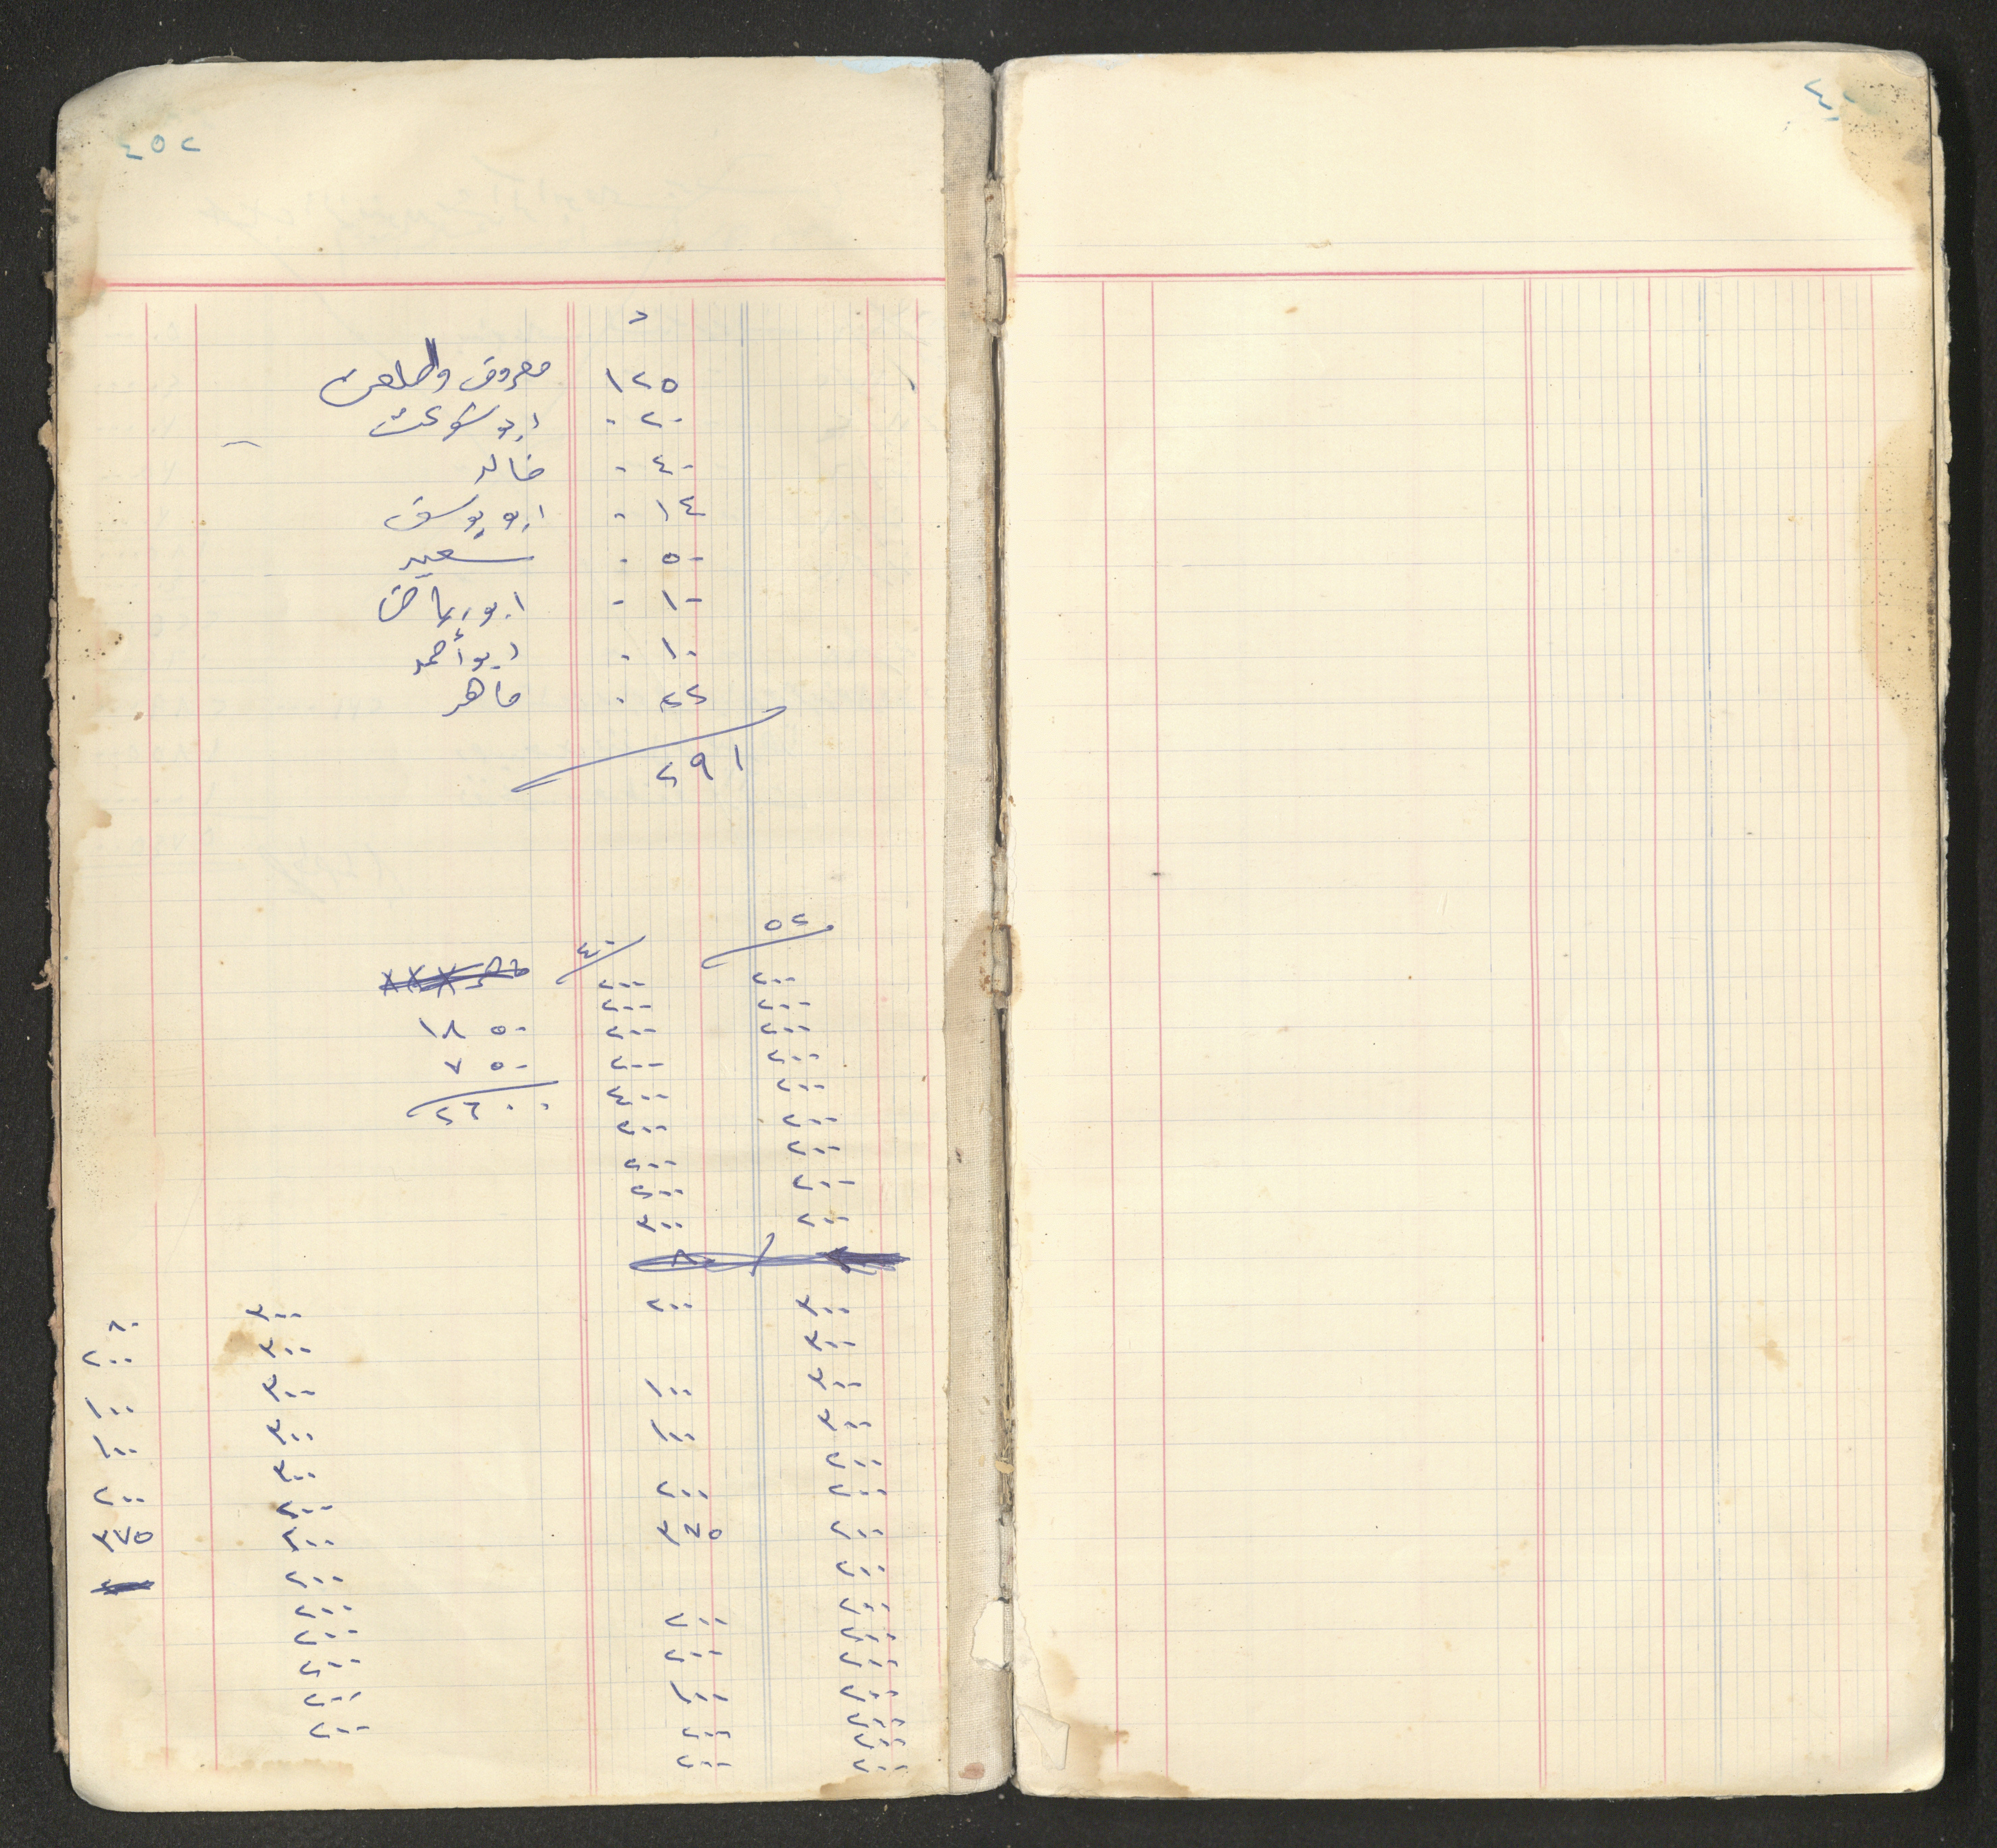 ٤٥٢
معروف وطلعت ١٢٥
ابو شوكت ٠٢٠
خالد ٠٤٠
ابو يوسف ٠١٤
سعيد ٠٥٠
ابو رياض ٠١٠
ابو أحمد ٠١٠
ماهر ٠٢٢
٢٩١
٥٢ ٤٠
٢٠٠ ٢٠٠
٢٠٠ ٢٠٠
٢٠٠ ٢٠٠ ١٨٥٠
٢٠٠ ٢٠٠ ٧٥٠
٢٠٠ ٤٠٠ ٢٦٠٠
٢٠٠ ٢٠٠
٢٠٠ ٢٠٠
٢٠٠ ٢٠٠
٢٠٠ ٣٠٠
٣٠٠ ٢٠٠ ٣٠٠
٣٠٠ ٣٠٠ ٢٠٠
٣٠٠ ١٠٠ ٣٠٠ ١٠٠
٣٠٠ ١٠٠ ٣٠٠ ١٠٠
٢٠٠ ٣٠٠
٢٠٠ ٢٠٠ ٢٠٠ ٢٠٠
٢٠٠ ٣٧٥ ٢٠٠ ٣٧٥
٢٠٠ ٢٠٠
٢٠٠ ٢٠٠ ٢٠٠
٢٠٠ ٢٠٠
٢٠٠ ٢٠٠ ٢٠٠
٢٠٠ ١٠٠ ٢٠٠
٢٠٠ ٢٠٠ ٢٠٠
٢٠٠
٢٠٠ ٢٠٠